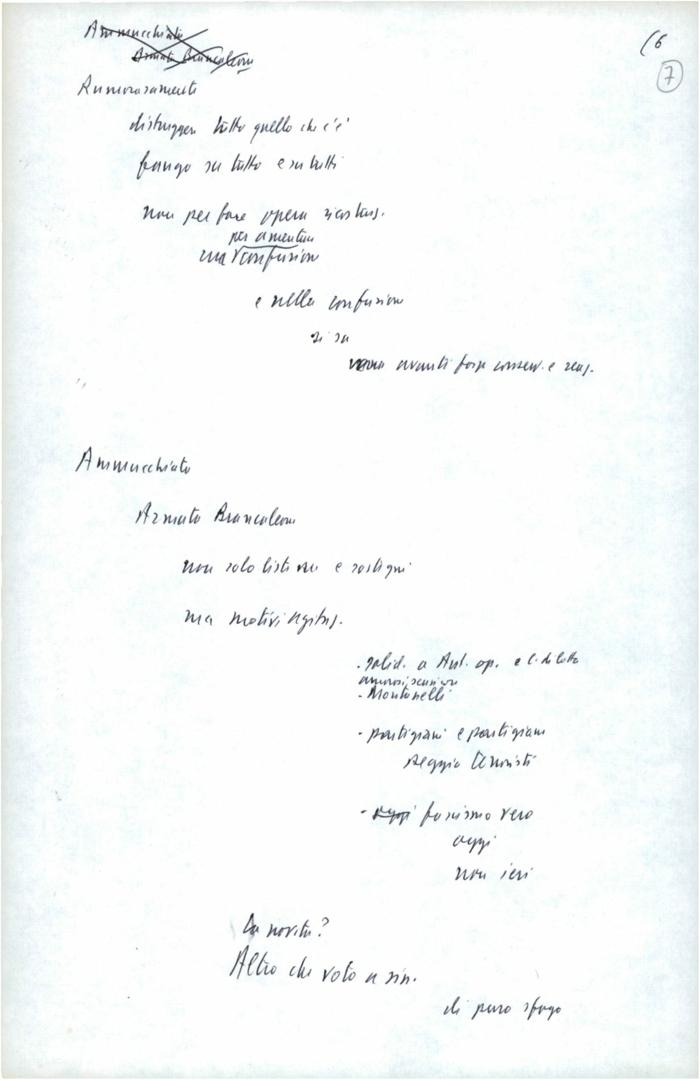 Ammucchiata
Armata Brancaleone
(6
7
Rumorosamente
distruggere tutto quello che c'è
fango su tutto e su tutti
non per fare opera ricostrus.
per aumentare
ma confusione
e nella confusione
si sa
vanno avanti forze conserv. e reaz.
Ammucchiata
Armata Brancaleone
non solo liste e sostegni
ma motivi agitaz.
- solid. a Aut. op. e C. di lotta
- Montanelli
- partigiani e partigiani
Reggio
- oggi fascismo vero
oggi
non ieri
La novità?
Altro che voto a sin.
di puro sfogo